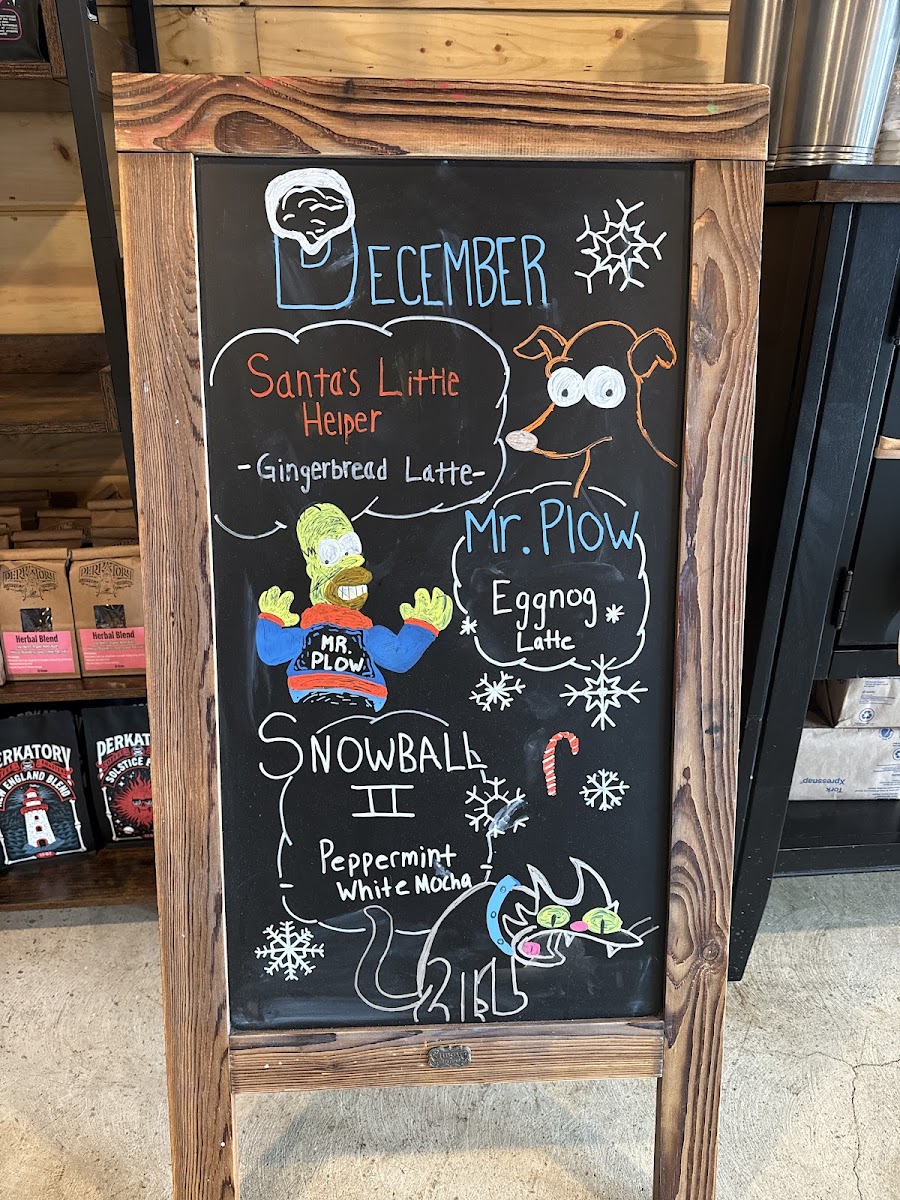 DECEMBER
Santa's Little
Helper
-Gingerbread Latte-
Mr. Plow
Eggnog
Latte
MR.
PLOW
SNOWBALL
II
Peppermint
White Mocha
PERKATORY
Herbal Blend
PERKATORY
Herbal Blend
PERKATORY
NEW ENGLAND BLEND
PERKATORY
SOLSTICE
Tork
Xpressnap